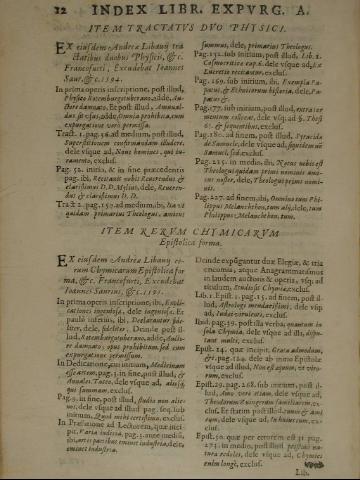 12 INDEX LIBR. EXPVRG. A.
ITEM TRACTATVS DVO PHYSICI.
EX eiusdem Andreæ Libauij tra
ctatibus duobus Physicis, &c.
Francofurti, Excudebat Ioannes
Saur, &c. 1594.
In prima operis inscriptione, ibi, post illud,
Physico Rotemburgotuberano, adde, Au-
ctore damnato. Et post illud, Annual-
dus &c. adde, Omnia prohibita, cum
expurgatione verò permissa.
Tract. 1. pag. 16. ad medium, post illud,
Superstitionem confirmandam illudere,
dele vsque ad, Nunc homines, qui iu-
ramento, exclus.
Pag. 52. initio, & in fine præcedentis
pag. ibi, Recitauit nobis Reuerendus &
clarissimus D. D. Mylius, dele, Reueren-
dus & clarissimus D. D.
Tract. 2. pag. 150. ad medium, ibi,
quidam primarius Theologus, amicus
summus, dele, primarius Theologus.
Pag. 152. sub initium, post illud, Lib. 1.
Cosmocritices cap. 6. dele vsque ad,
Lucretio recitantur, exclus.
Pag. 156. sub initium, ibi, Exempla Pa-
pæ, & Ethnicorum historia, dele, Pa-
pæ &.
Pag. 177. sub initium, post illud,
dele, vsq; ad §. Theo
exclus.
Pag. 186. ad finem, post illud,
de Samuele, dele vsque ad,
Samuel, exclus.
Pag. 215. in medio, ibi, Notus nobis est
Theologus quidam primi nominis ami-
cus noster, dele, Theologus primi nomi-
nis.
Pag. 227. ad finem, ibi, Omnino tum Phi-
lippus Melanchthon, tum alij, dele, tum
Philippus Melanchthon, tum.
ITEM RERVM CHYMICARVM
Epistolica forma.
EX eiusdem Andreæ Libauij re-
rum Chymicarum Epistolica for
ma, &c. Francofurti, Excudebat
Ioannes Saurius, &c. 1595.
In prima operis inscriptione, ibi, Expli-
cationes ingeniosa, dele ingeniosa. Et
paulo inferius, ibi, Declarantur fide-
liter, dele, fideliter. Deinde post il-
lud, Rotemburgotuberano, adde, Aucto-
re damnato, opus prohibitum, sed cum
expurgatione permissum.
In Dedicatione, cui initium, Medicinam
esse artem, pag. 5. in fine, post illud, &
dele vsque ad, aliisq;
summam, exclus.
Pag. 9. in fine, post illud, studio non alie-
nus, dele vsque ad illud pag. seq. sub
initium, Quod mihi certissimo, exclus.
In Præfatione ad Lectorem, quæ inci-
pit, Varia industria, pag. 3. ante medium,
ibi, dele
eminet industria.
Deinde expūgantur duæ Elegiæ, & tria
encomia, atque Anagrammatismus
in laudem auctoris & operis, vsq; ad
titulum, Studiosis Chymiæ, exclus.
Lib. 1. Epist. 1. pag. 15. ad finem, post il-
lud, Astrologi mendacissimi, dele vsq;
ad, exclus.
Ibid. pag. 19. post illa verba, quantum in
sola Chymia, dele vsque ad illa, dispu-
tant multi, exclus.
Epist. 14. quæ incipit, Grata admodum,
&c. pag. 124. dele ab initio Epistolæ
vsque ad illud, Non est æquum, vt vitio-
rum, exclus.
Epist. 29. pag. 268. sub initium, post il-
lud, Imo verò etiam, dele vsque ad,
Theodorum Zuingerum familiarem, ex-
clus. Et statim post illud,
dele vsque ad, In thesaurum,
exclus.
Epist. 30. quæ per errorem est 31. pag.
273. in medio, post illud,
natura cedoles, dele vsque ad, Chymici
enim longè, exclus.
Lib.